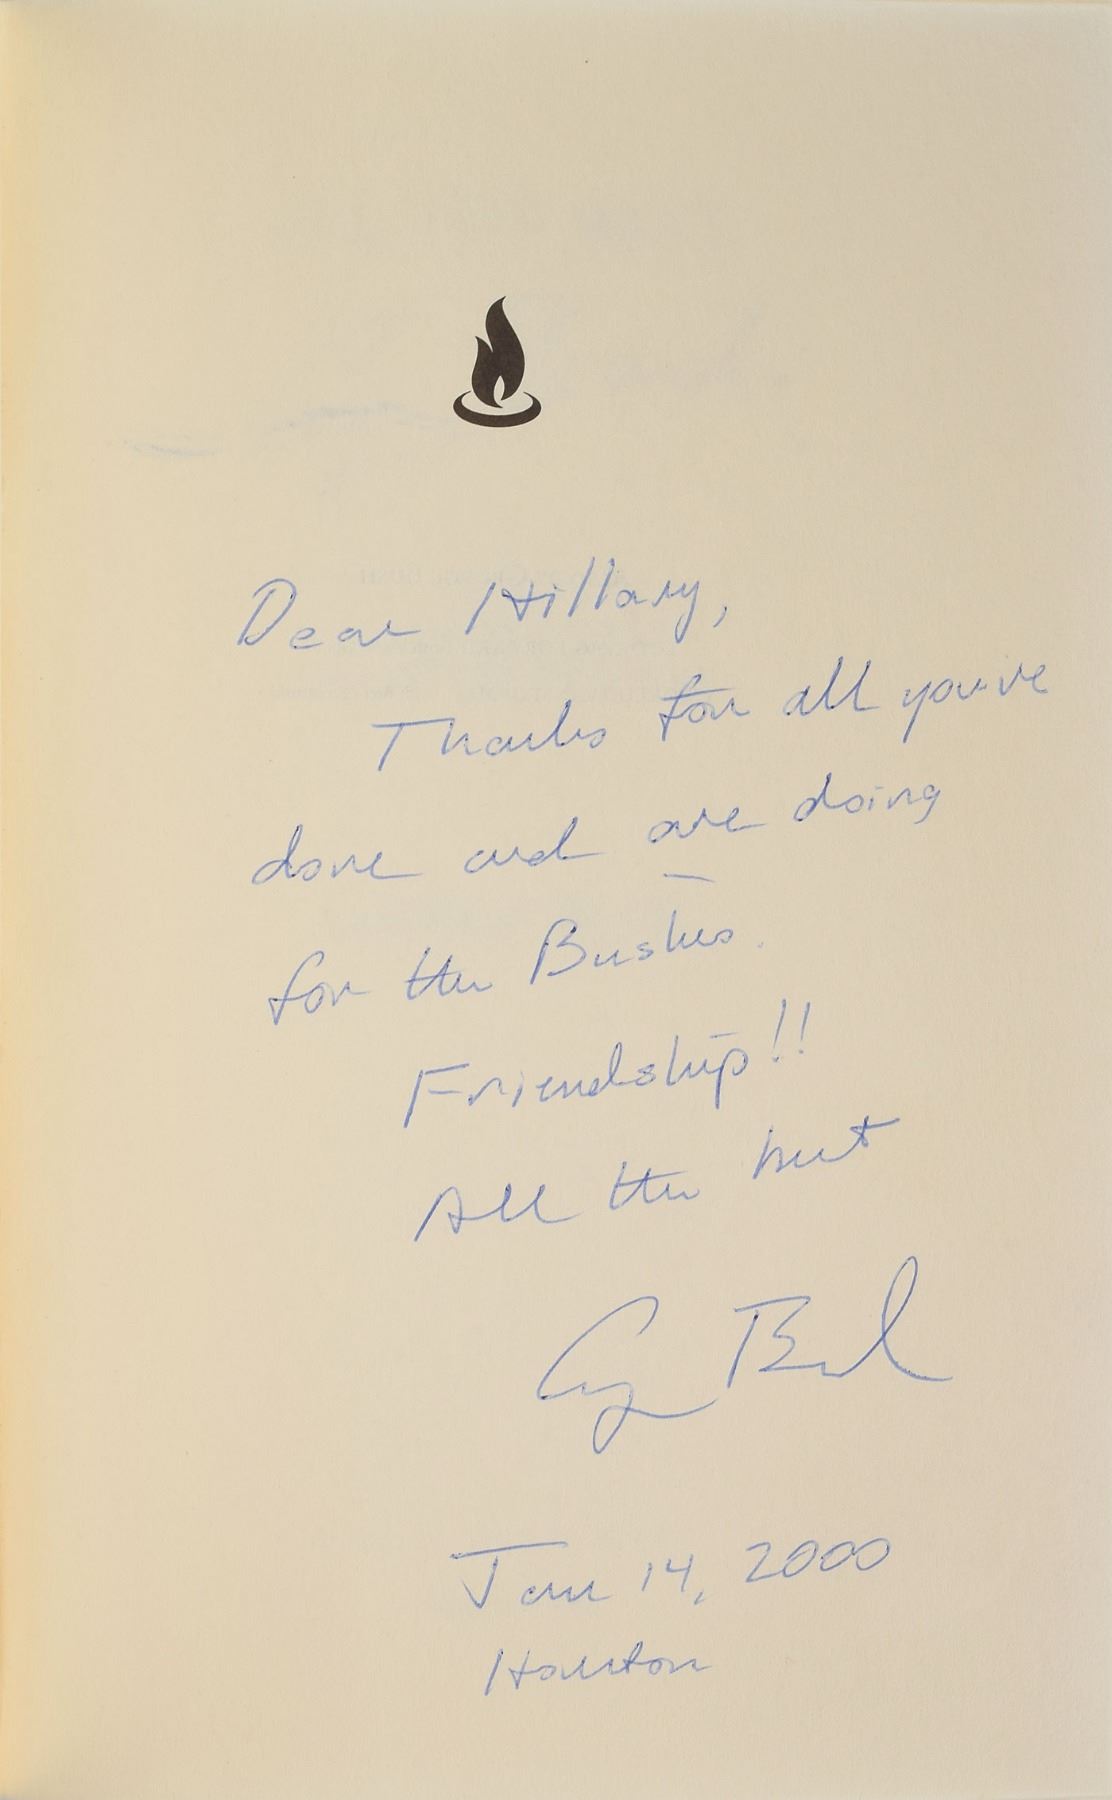 Dear Hillary,
Thanks for all you've
done and are doing
for the Bushes.
Friendship!!
All the best
Gg Bush
Jan 14, 2000
Houston